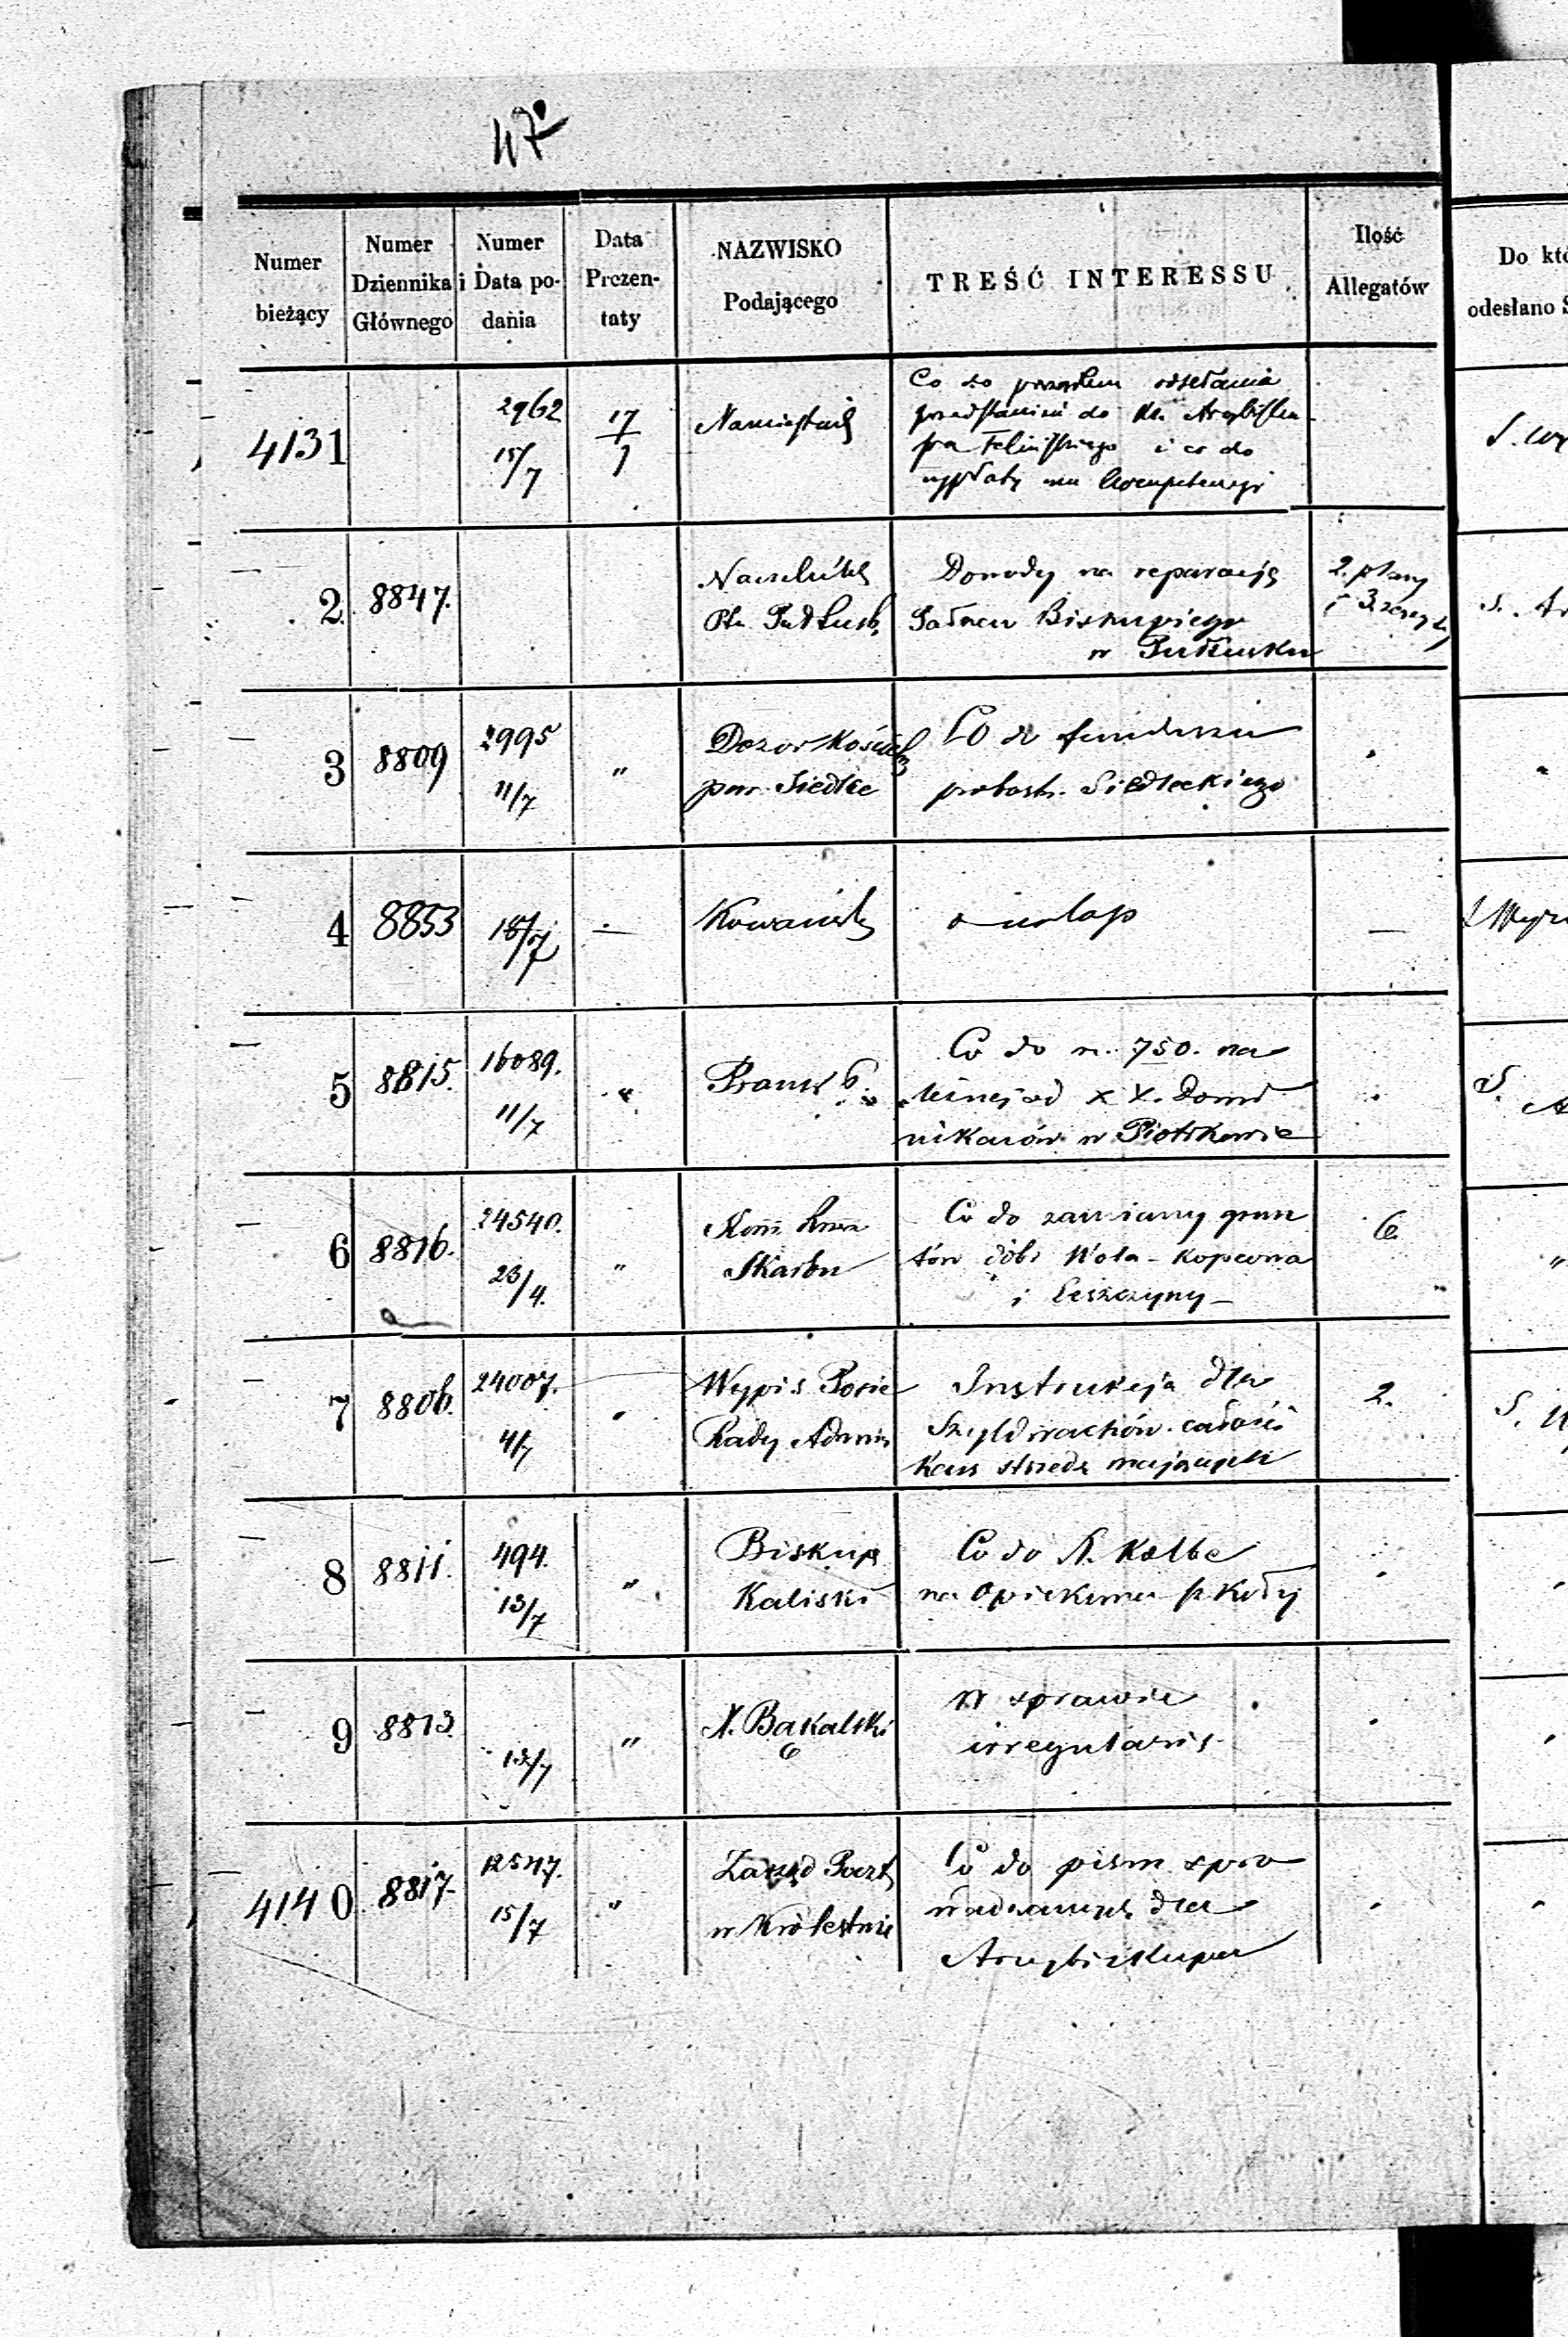 47
Numer
bieżący
Numer
Dziennika
Głównego
Numer
i Data po-
dania
Data
Prezen-
taty
NAZWISKO
Podającego
TREŚĆ INTERESSU
Ilość
Allegatów
Do któ
odesłano S
4131
2962
15/7
17
7
Namiestnik
Co do
przedstawień do Ks. Arcybisku-
pa Felińskiego i co do
wypłaty mu kompetencyi
2
8847.
Naczelnik
Ptu Pułtusk.
Dowody na reparacją
Pałacu Biskupiego
w Pułtusku
2. plany
i 3.
3
8809
2995
11/7
"
Dozor Kościel
par. Siedlce
Co do funduszu
probost. Siedleckiego
4
8853
18/7
—
o urlop
—
5
8815.
16089.
11/7
"
Co do r. 750. na
leżnej od XX. Domi
nikanów w Piotrkowie
6
8816.
24540.
23/4.
"
Skarbu
Co do zamiany grun
tów dóbr Wola-Kopcowa
i Leszczyny—
6
"
7
8806.
24007.
4/7
"
Wypis Posie
Rady Admin
Instrukcja dla
Szyldwachów całości
Kass strzedz mających
2.
8
8811.
494.
13/7
"
Biskup
Kaliski
Co do A. Kolbe
na Opiekuna szkoły
9
8813.
13/7
"
X. Bąkalski
W sprawie
irregularis.
4140
8817.
12547.
15/7
"
Zarząd Poczt
w Królestwie
Co do pism spro
wadzanych dla
Arcybiskupa